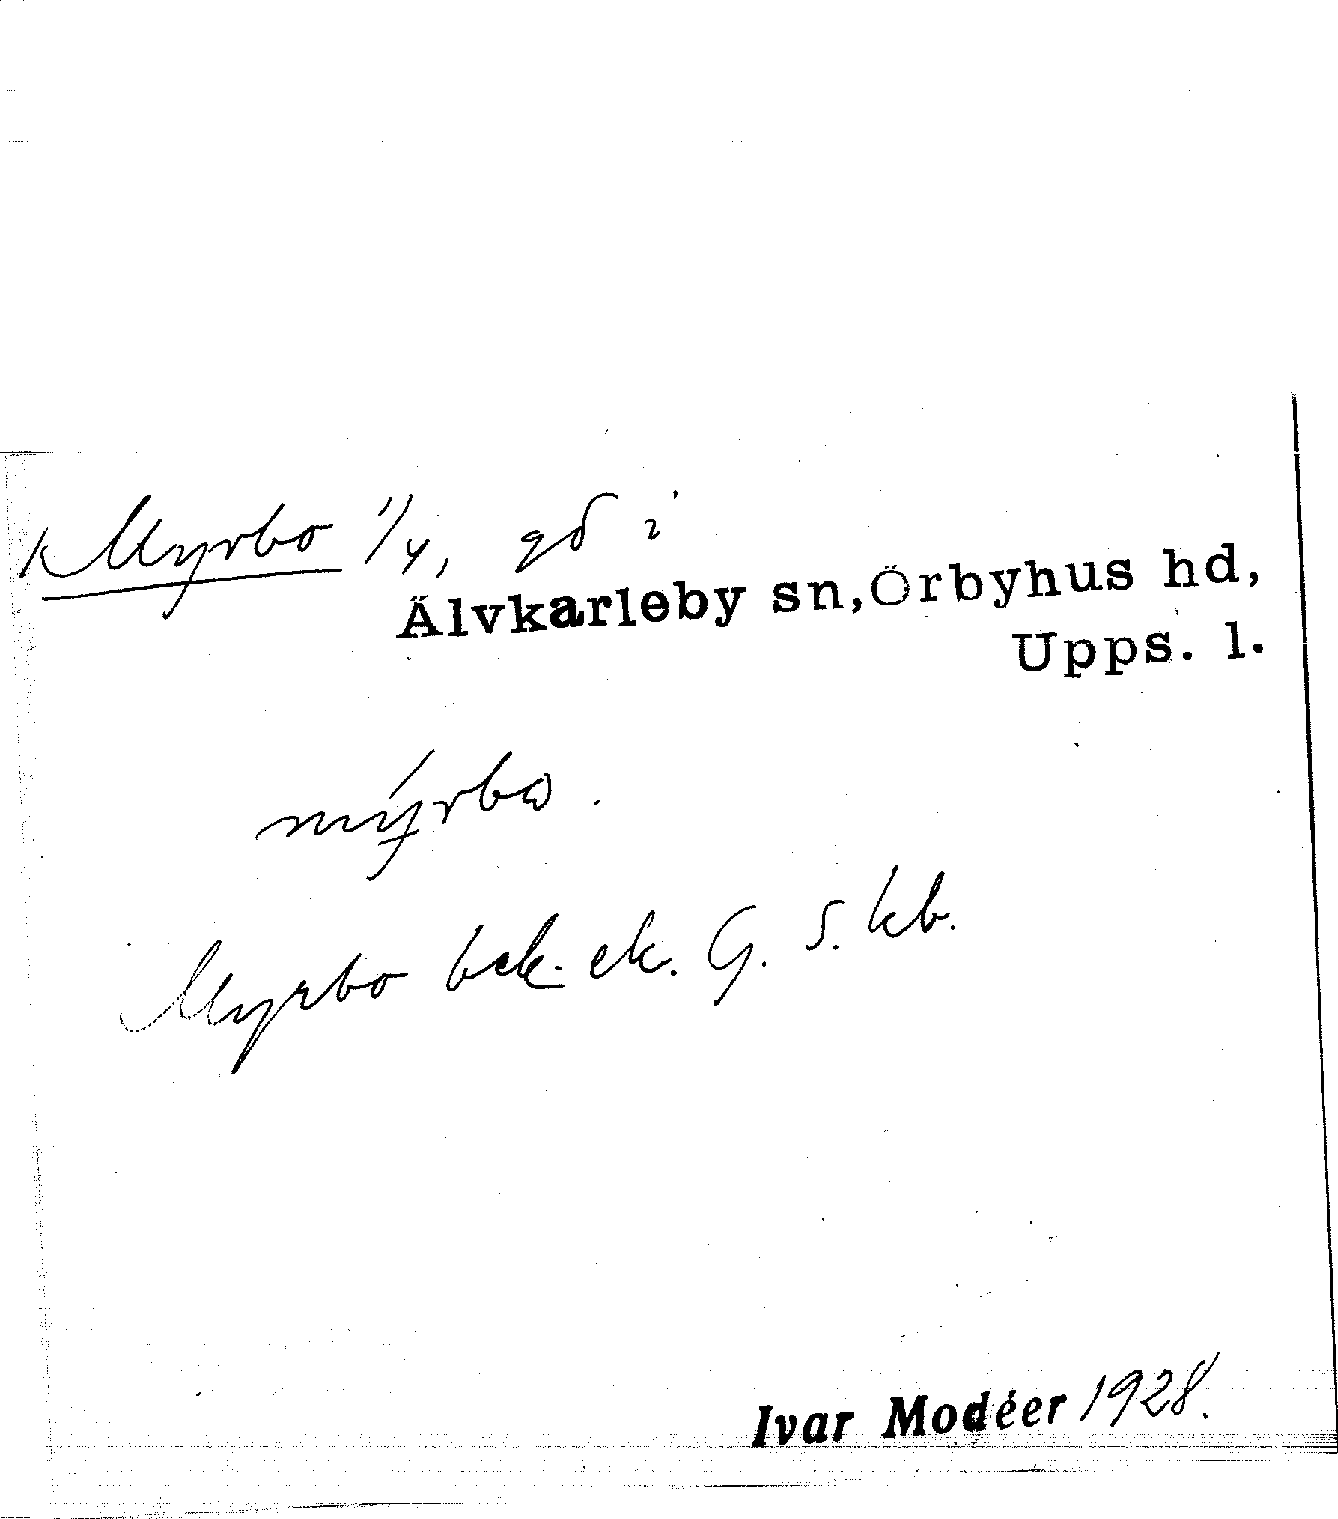 k Myrbo 1/4, gd i
Älvkarleby sn, Örbyhus hd,
Upps. l.
mýrbω.
Myrbo bek. ek. G. S. kb.
Ivar Modéer 1928.